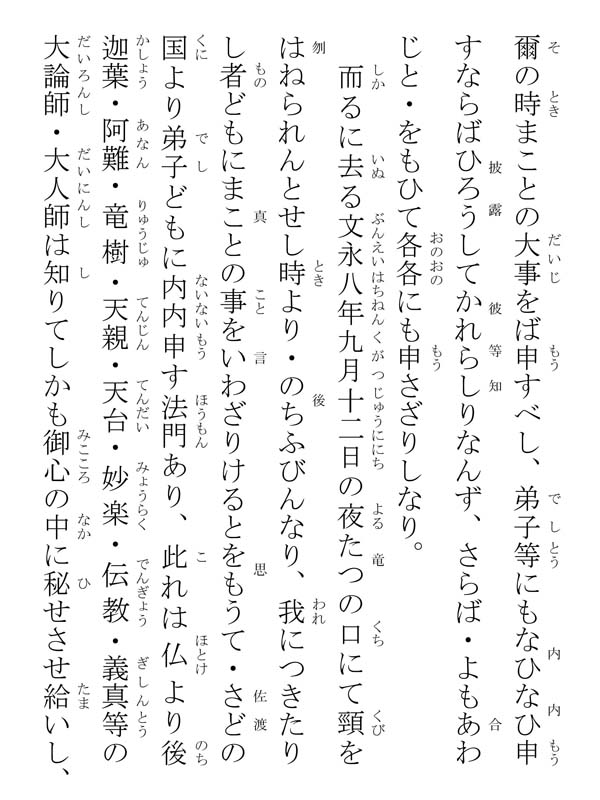 爾の時まことの大事をば申すべし、弟子等にもなひなひ申
すならばひろうしてかれらしりなんず、さらば・よもあわ
じと・をもひて各各にも申さざりしなり。
而るに去る文永八年九月十二日の夜たつの口にて頸を
はねられんとせし時より・のちふびんなり、我につきたり
し者どもにまことの事をいわざりけるとをもうて・さどの
国より弟子どもに内内申す法門あり、此れは仏より後
迦葉・阿難・竜樹・天親・天台・妙楽・伝教・義真等の
大論師・大人師は知りてしかも御心の中に秘せさせ給いし、